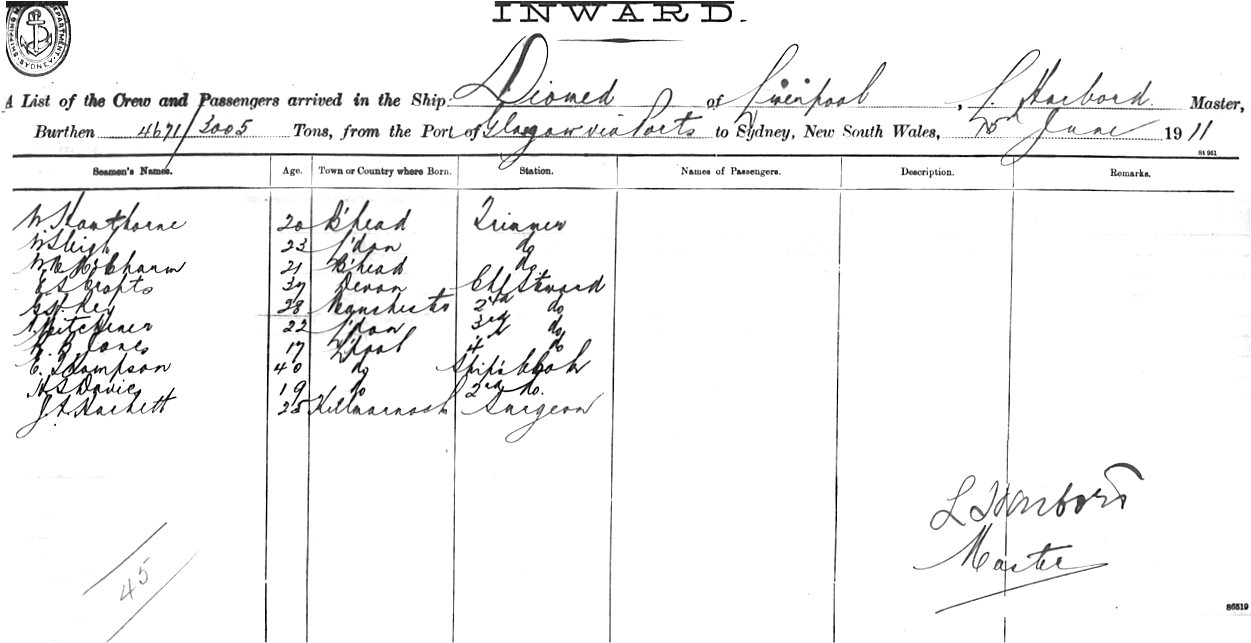 SHIPPING MA DEPARTMENT SYDNEY
INWARD.
A List of the Crew and Passengers arrived in the Ship: Diomed of Liverpool, L. Harbord Master,
Burthen 4671/3005 Tons, from the Port of Glasgow via Ports to Sydney, New South Wales, June 1911
St 961
Seamen's Names. Age. Town or Country where Born. Station. Names of Passengers. Description. Remarks.
W Hawthorne 20 B'head Trimmer
W Sleigh 23 L'don do
W 21 B'head do
E S Crofts 37 Devon Chf Steward
28 Manchester 2nd do
Kitchener 22 L'don 3rd do
B Jones 17 L'pool 4 do
E. Thompson 40 do Ship's Cook
H S Davies 19 do 2nd do.
J A Hackett 25 Killmarnock Surgeon
L Harbord
Master
45
86519